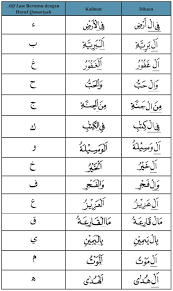 Alif Lam Bertemu dengan Huruf Qomariyah Kalimat Dibaca
ء فِي الْأَرْضِ فِي اَلْ أَرْضِ
ب اَلْبَرِيَّةِ اَلْ بَرِيَّةِ
غ اَلْغَفُوْرُ اَلْ غَفُوْرُ
ح وَالْحَبُّ وَالْ حَبُّ
ج مِنَ الْجِنَّةِ مِنَ الْ جِنَّةِ
ك فِي الْكِتٰبِ فِي الْ كِتٰبِ
و الْوَسِيْلَةَ اَلْ وَسِيْلَةَ
خ الْخَيْرُ اَلْ خَيْرُ
ف وَالْفَجْرِ وَالْ فَجْرِ
ع الْعَزِيْزُ اَلْ عَزِيْزُ
ق مَا الْقَارِعَةُ مَالْ قَارِعَةُ
ي بِالْيَمِيْنِ بِالْ يَمِيْنِ
م الْمَوْتُ اَلْ مَوْتُ
ه الْهُدٰى اَلْ هُدٰى